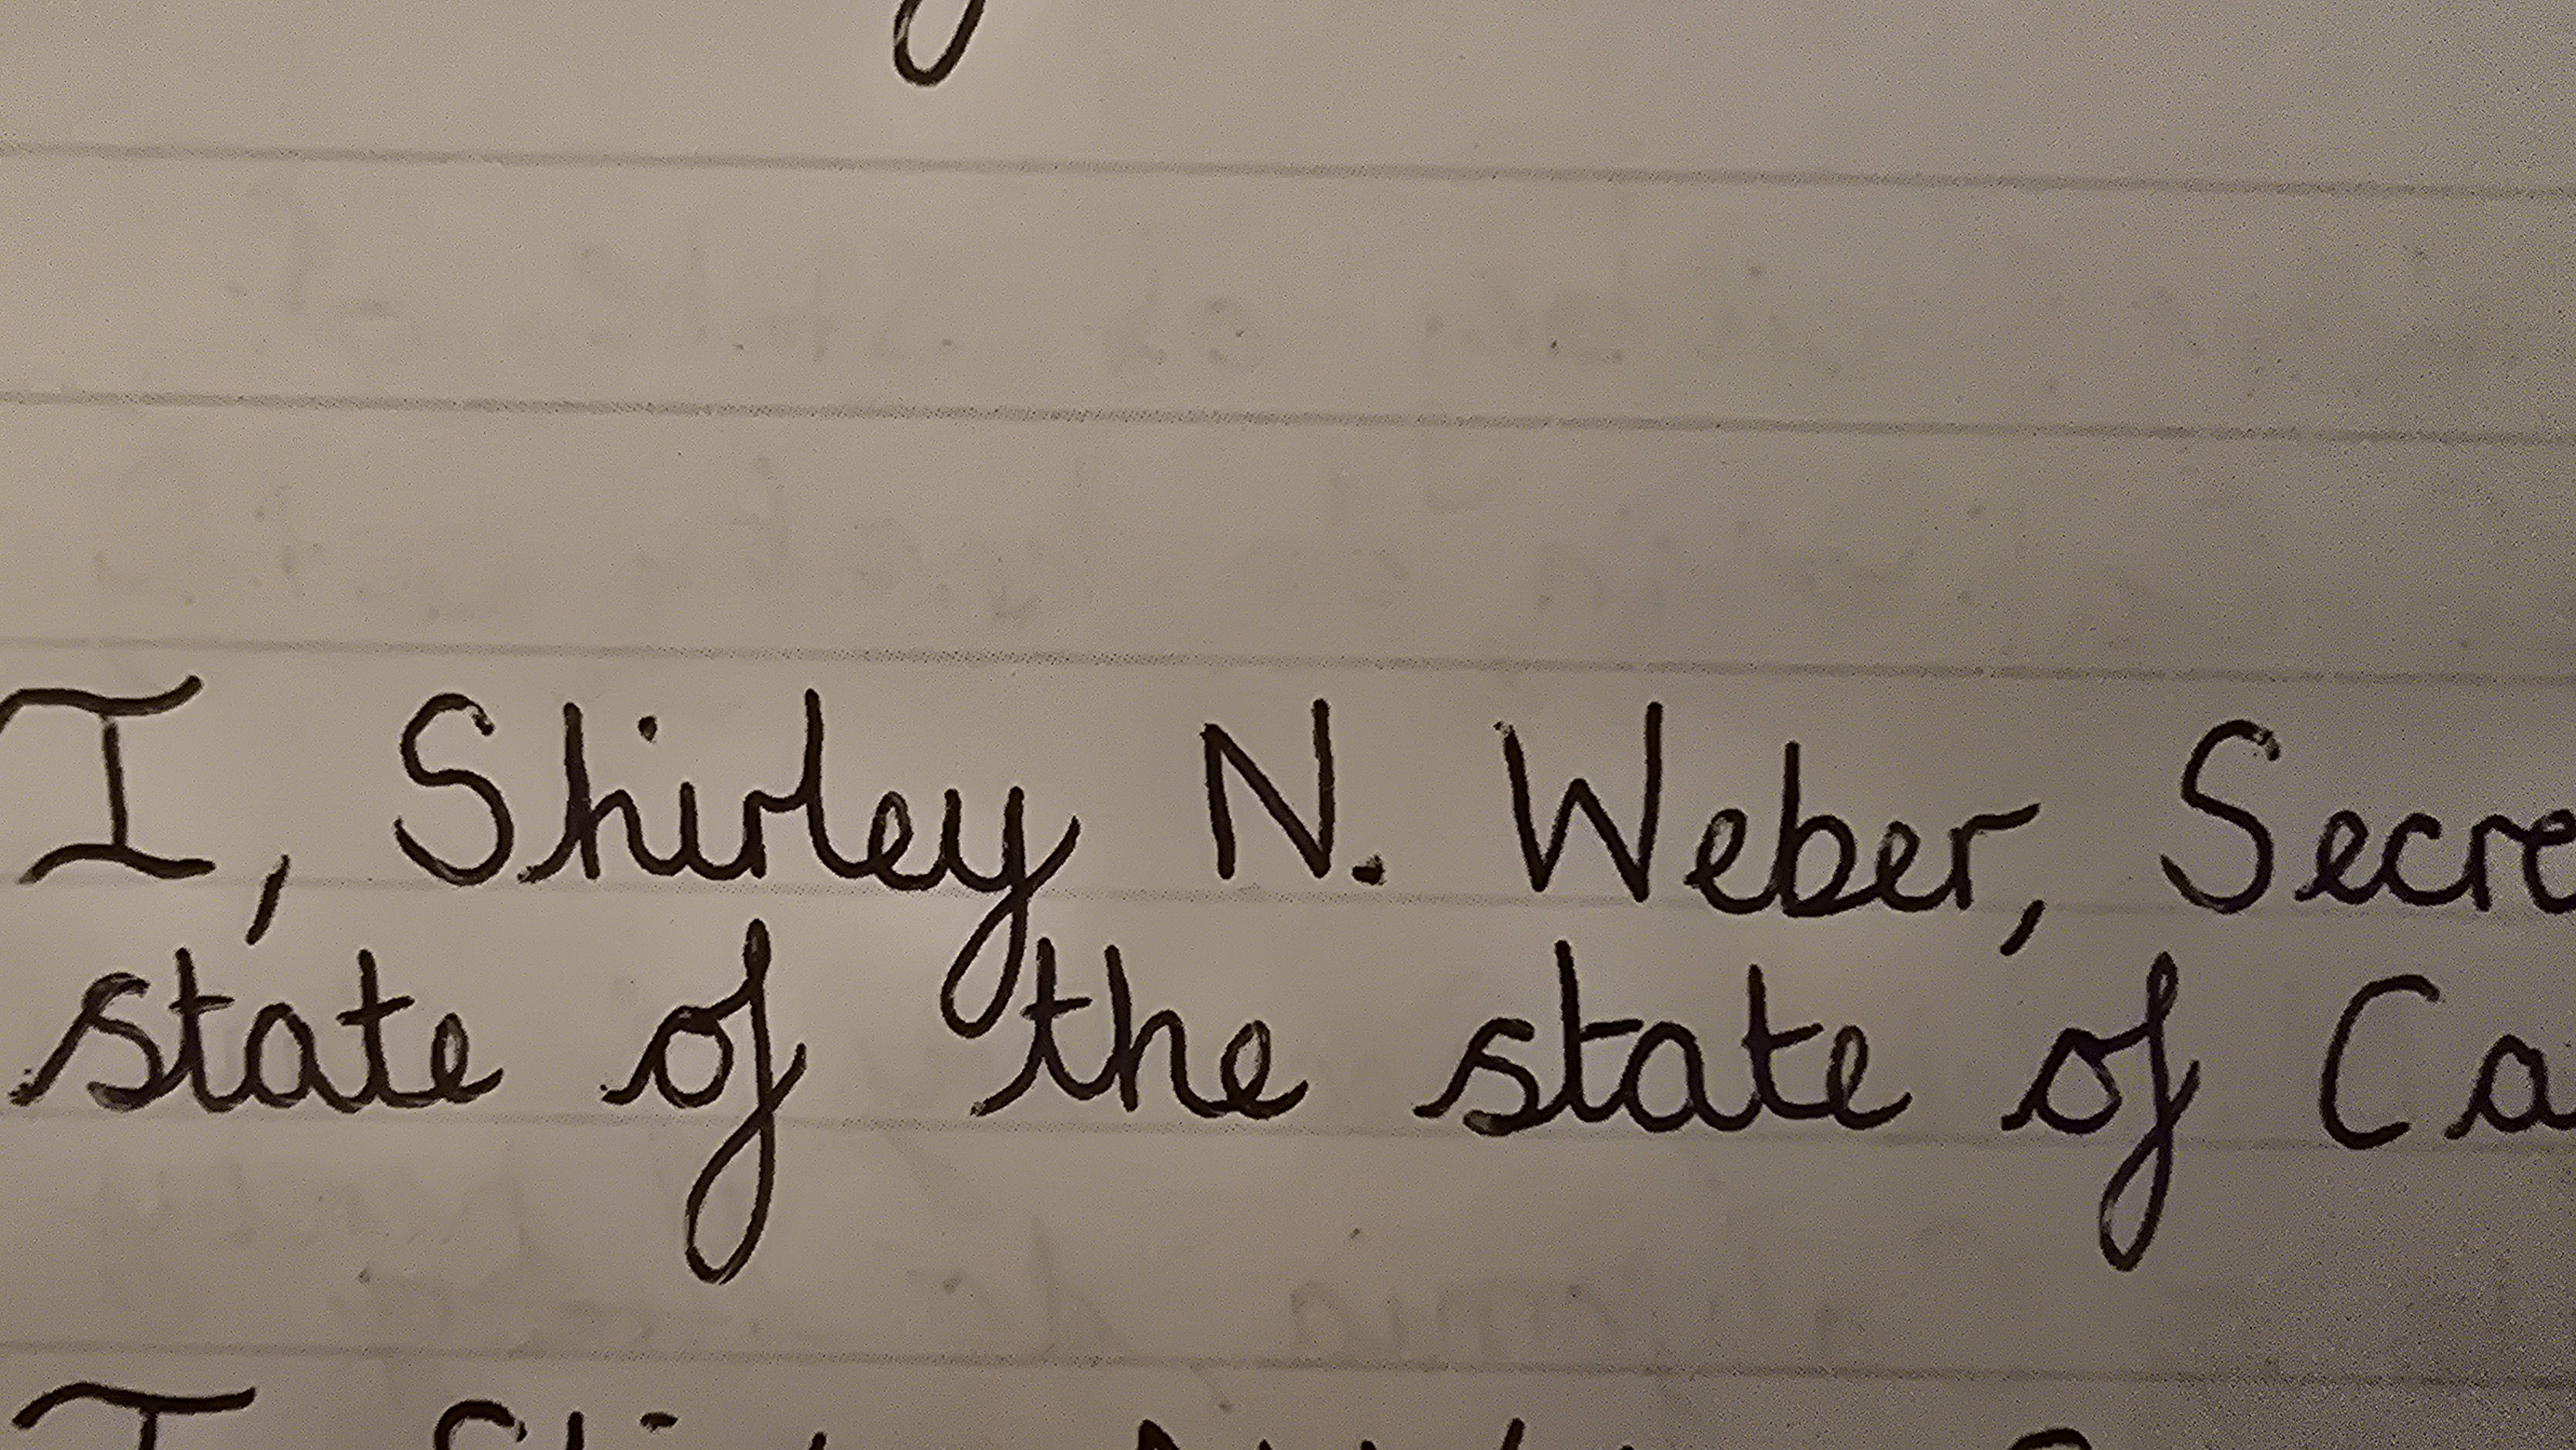 I, Shirley N. Weber, Secre
state of the state of Ca